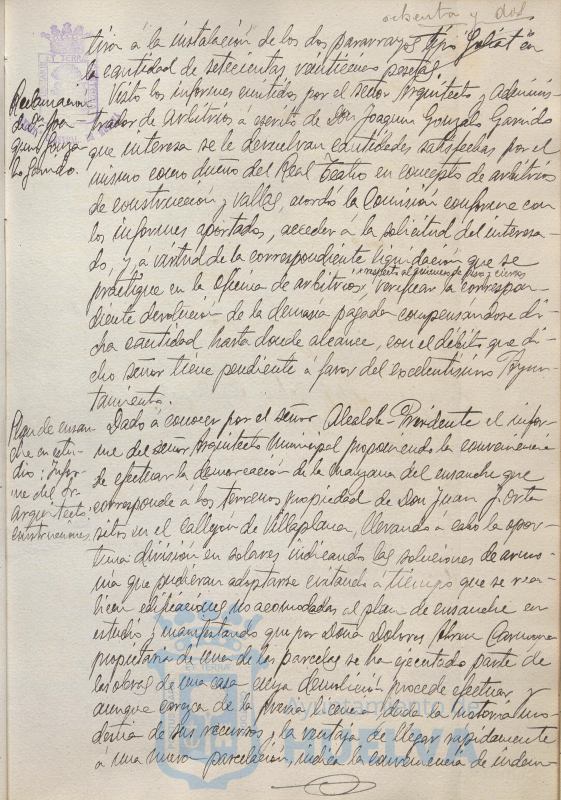 ochenta y dos
tiva á la instalación de los dos pararrayos tipo "Goliat" en
la cantidad de setecientas veintiuna pesetas
Reclamación
de Dn. Joa-
quín Gonza-
lo Garrido.
Visto los informes emitidos por el señor Arquitecto y Adminis-
trador de Arbitrios á escrito de Don Joaquin Gonzalo Garrido
que interesa se le devuelvan cantidades satisfechas por el
mismo como dueño del Real Teatro en concepto de arbitrios
de construcción y vallas, acordó la Comisión conforme con
los informes aportados, acceder á la solicitud del interesa-
do, y a virtud de la correspondiente liquidación que se
practique en la oficina de arbitrios, verificar la correspon-
diente devolución de la demasia pagada compensandose di-
cha cantidad hasta donde alcance, con el débito que di-
cho señor tiene pendiente á favor del excelentísimo Ayun-
tamiento.
Plan de ensan-
che en estu-
dio: Infor-
me del Sr.
Arquitecto.
Construcciones
Dado á conocer por el señor Alcalde-Presidente el infor-
me del señor Arquitecto Municipal proponiendo la conveniencia
de efectuar la demarcación de la manzana del ensanche que
corresponde a los terrenos propiedad de Don Juan
sitos en el Callejon de Villaplana, llevando á cabo la opor-
tuna división en solares indicando las soluciones de armo-
nia que pudieran adoptarse evitando á tiempo que se rea-
licen edificaciones no acomodadas al plan de ensanche en
estudio y manifestando que por Doña Dolores Carmona
propietaria de una de las parcelas se ha ejecutado parte de
las obras de una casa cuya demolición procede efectuar y
aunque carezca de la previa licencia, dada la notoria mo-
destia de sus recursos y la ventaja de llegar rapidamente
á una nueva parcelación, indica la conveniencia de indem-
Ayuntamiento de
HUELVA